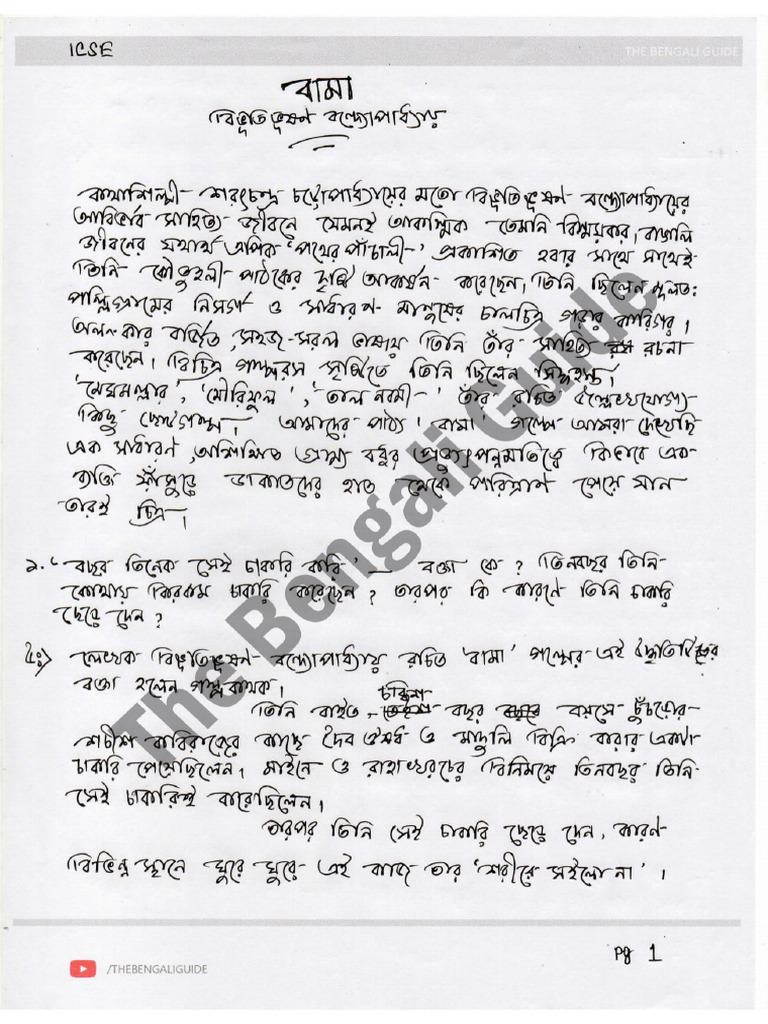 ICSE
THE BENGALI GUIDE
বামা
বিভূতিভূষণ বন্দ্যোপাধ্যায়
কথাশিল্পী শরৎচন্দ্র চট্টোপাধ্যায়ের মতো বিভূতিভূষণ বন্দ্যোপাধ্যায়ের
আবির্ভাব সাহিত্য জীবনে যেমনই আকস্মিক তেমনি বিস্ময়কর। বাঙালি
জীবনের যথার্থ এপিক 'পথের পাঁচালী' প্রকাশিত হবার সাথে সাথেই
তিনি কৌতুহলী পাঠকের দৃষ্টি আকর্ষন করেছেন, তিনি ছিলেন মূলত:
পল্লিগ্রামের নিসর্গ ও সাধারণ মানুষের চালচিত্র গড়ার কারিগর।
অলংকার বর্জিত, সহজ-সরল ভাষায় তিনি তাঁর সাহিত্য রচনা
করেছেন। বিচিত্র গল্পরস সৃষ্টিতে তিনি ছিলেন সিদ্ধহস্ত।
'মেঘমল্লার', 'মৌরিফুল', 'তাল নবমী' তাঁর রচিত উল্লেখযোগ্য
কিছু ছোটগল্প। আমাদের পাঠ্য 'বামা' গল্পে আমরা দেখেছি
এক সাধারণ, অশিক্ষিত গ্রাম্য বধুর প্রত্যুৎপন্নমতিত্বে কিভাবে এক
ব্যক্তি ফাঁসুড়ে ডাকাতদের হাত থেকে পরিত্রাণ পেয়ে যান
তারই চিত্র।
১. 'বছর তিনেক সেই চাকরি করি' — বক্তা কে? তিনবছর তিনি
কোথায় কিরকম চাকরি করেছেন? তারপর কি কারণে তিনি চাকরি
ছেড়ে দেন?
উঃ) লেখক বিভূতিভূষণ বন্দ্যোপাধ্যায় রচিত 'বামা' গল্পের এই উদ্ধৃতিটির
বক্তা হলেন গল্পকথক।
চব্বিশ
তিনি বছর বয়সে চুঁচড়োর
শচীশ কবিরাজের কাছে দৈব ঔষধ ও মাদুলি বিক্রি করার একটা
চাকরি পেয়েছিলেন। মাইনে ও রাহাখরচের বিনিময়ে তিনবছর তিনি
সেই চাকরিই করেছিলেন।
তারপর তিনি সেই চাকরি ছেড়ে দেন, কারণ
বিভিন্ন স্থানে ঘুরে ঘুরে এই কাজ তার 'শরীরে সইলো না'।
The Bengali Guide
/THEBENGALIGUIDE
Pg 1